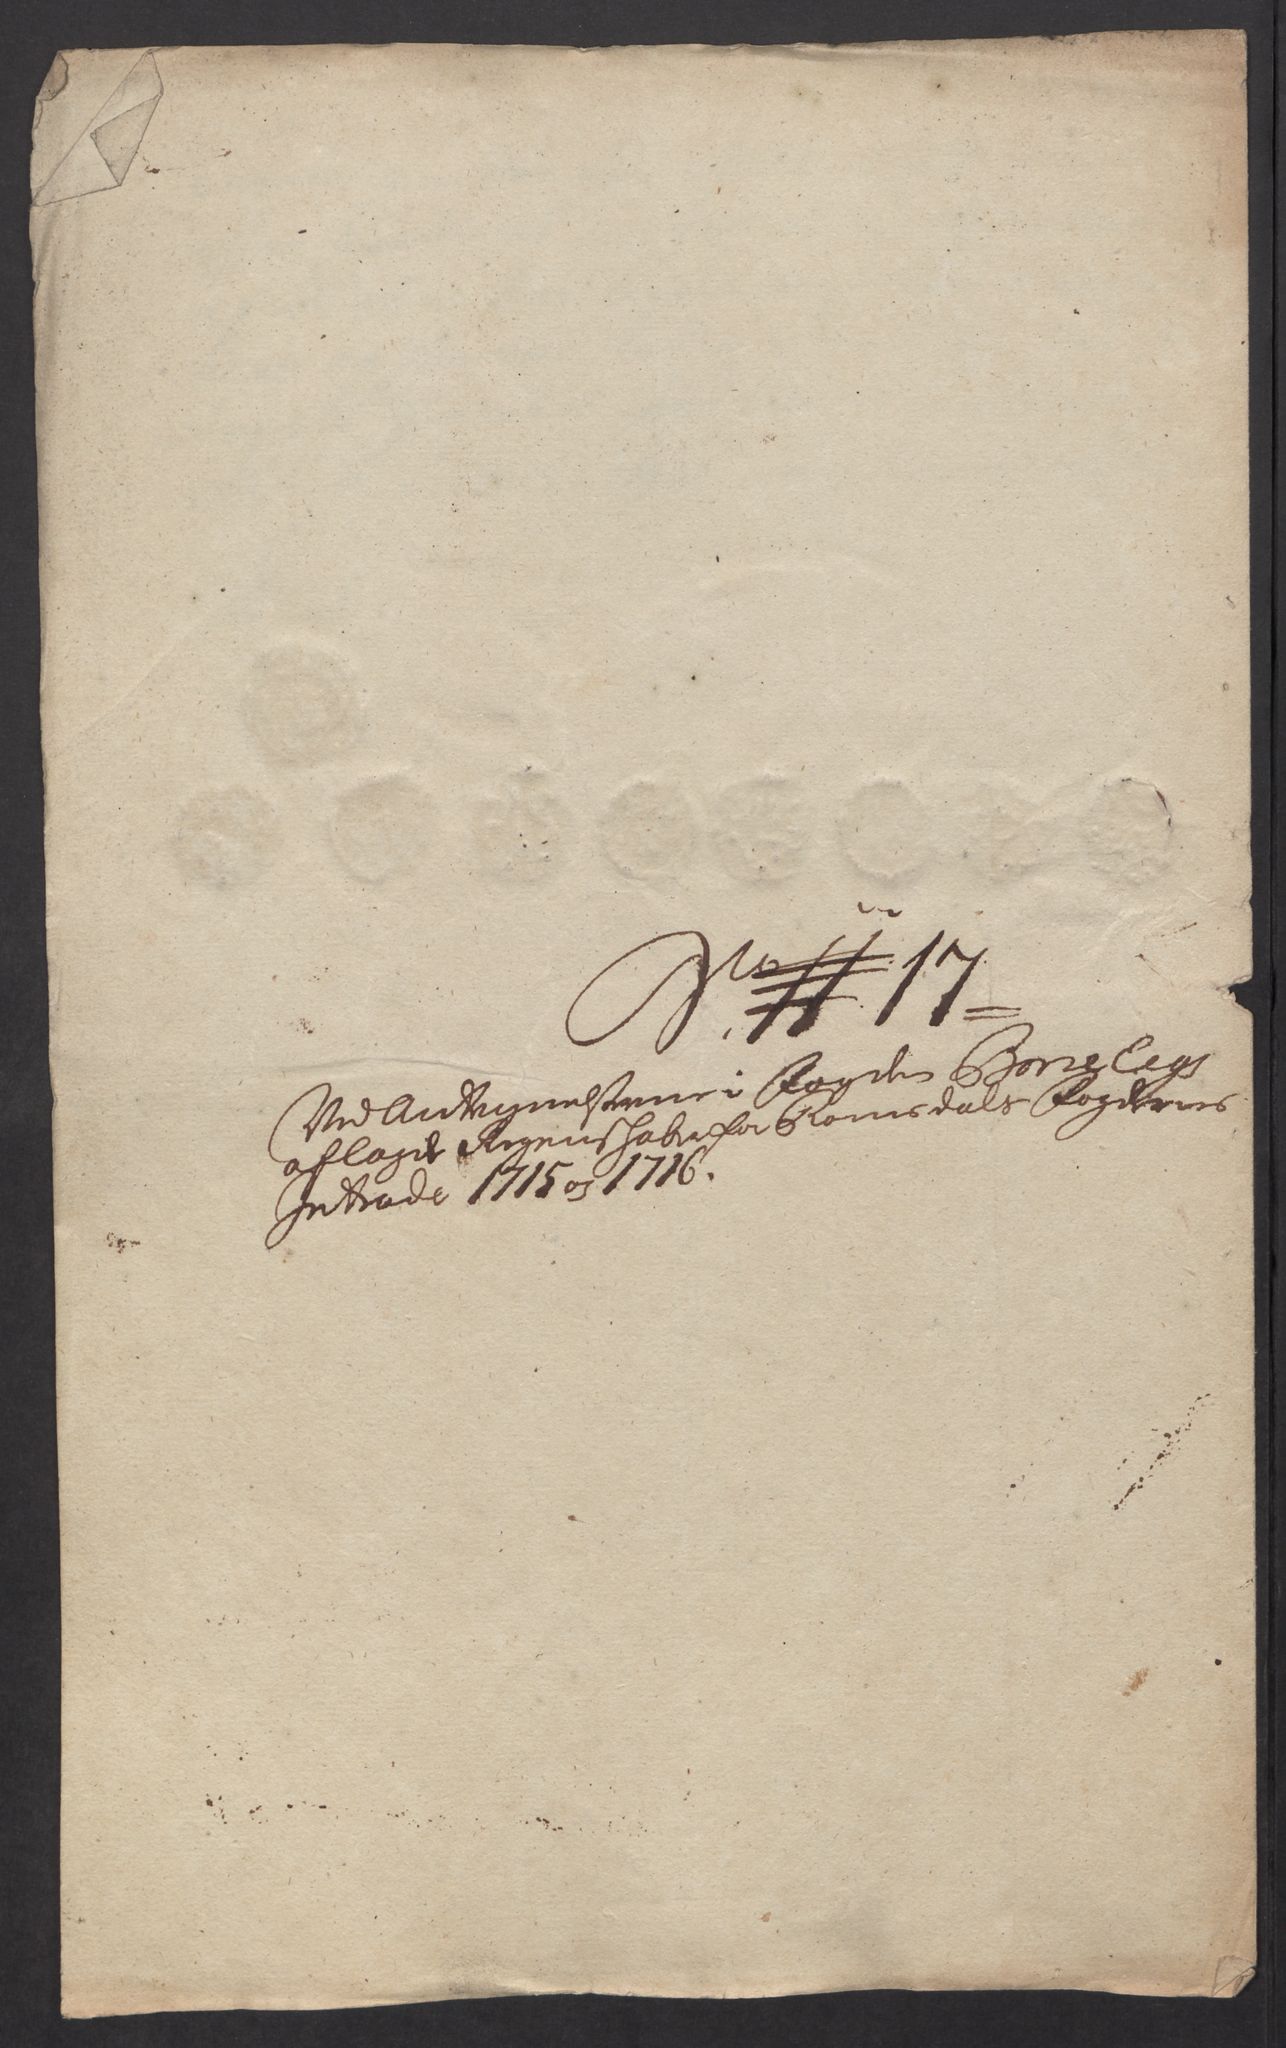 No 17
Ved Antegnelserne i Fogden
aflagde Regenskaber for Romsdals Fogderies
Intrade 1715 og 1716.